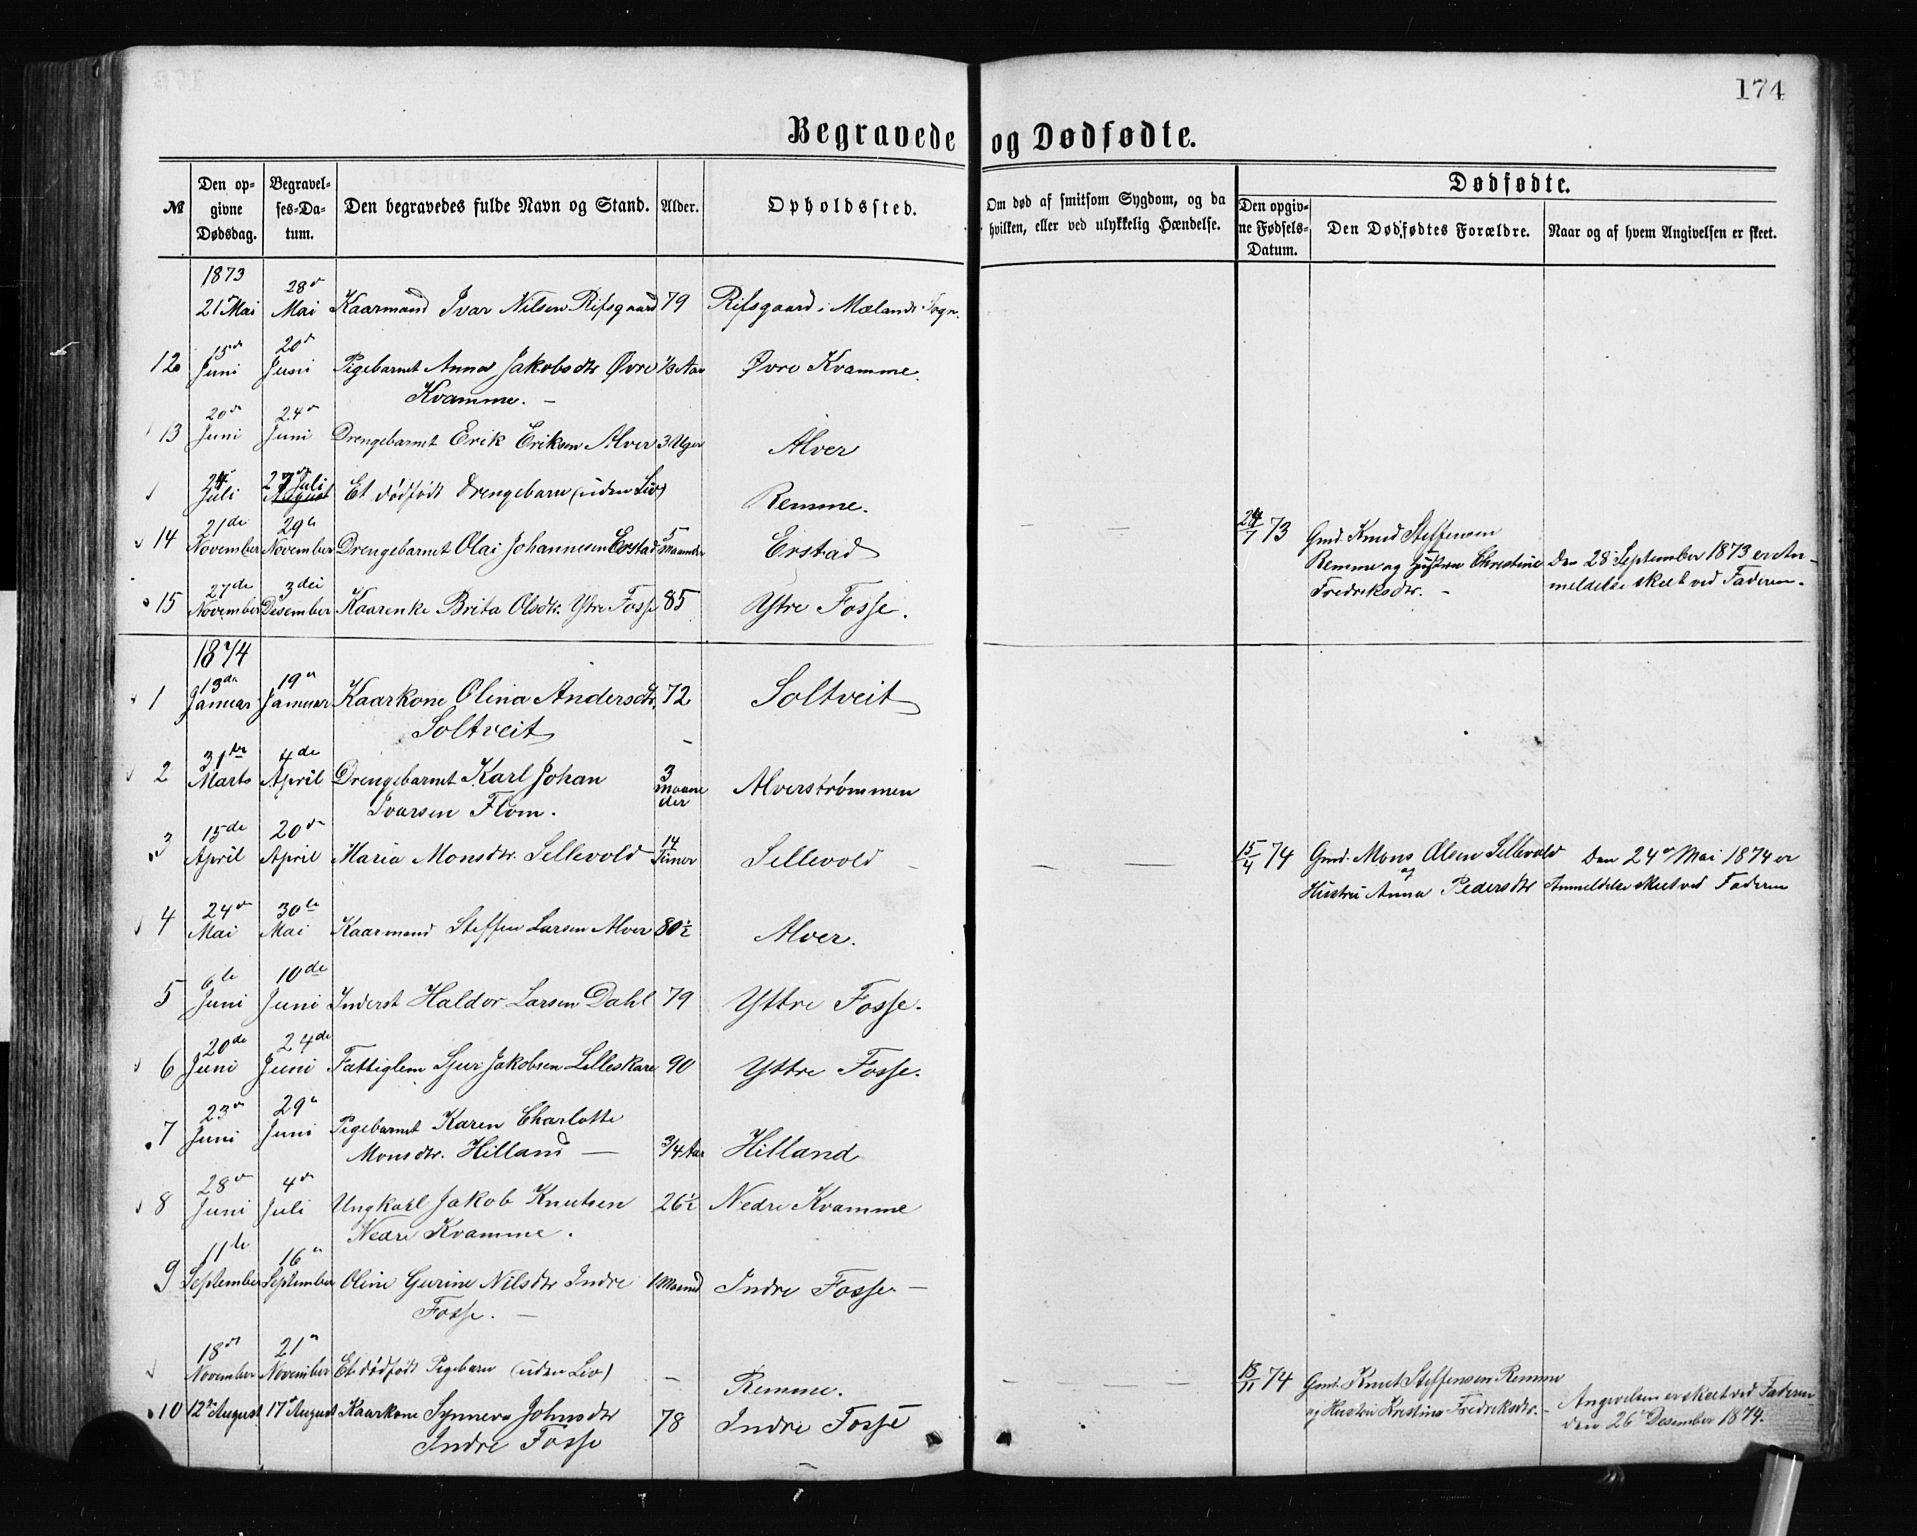 174
Begravede og Dødfødte.
№
Den opgivne Dødsdag.
Begravelses-Datum.
Den begravedes fulde Navn og Stand.
Alder.
Opholdssted.
Om død af smitsom Sygdom, og da hvilken, eller ved ulykkelig Hændelse.
Dødfødte.
Den opgivne Fødsels-Datum.
Den Dødfødtes Forældre.
Naar og af hvem Angivelsen er skeet.
1873
21 Mai 28de Mai Kaarmand Ivar Nilsen Rifsgaard 79 Rifsgaard i Mælands Sogn.
12 15de Juni 20de Juni Pigebarnet Anna Jakobsdtr Øvre 1/3 Aar Øvre Kvamme.
Kvamme. –
13 20de Juni 24de Juni Drengebarnet Erik Eriksen Alver 3 Uger Alver
24 Juli 27 Juli August Et dødfødt Drengebarn (uden Liv) Remme. – – 24/7 73 Gmd. Knud Steffensen
Remme og Hustru Christine Den 28 September 1873 er An-
Fredriksdtr. – meldelse skeet ved Faderen.
14 21de November 29de November Drengebarnet Olai Johannesen Erstad 5 Maaneder Erstad
15 27de November 3die Desember Kaarenke Brita Olsdtr. Ytre Fosse 85 Ytre Fosse.
1874
1 13de Januar 19de Januar Kaarkone Olina Andersdtr. 72 Soltveit
Soltveit
2 31te Marts 4de April Drengebarnet Karl Johan 3 Maaneder Alverstrømmen
Ivarsen Flom.
3 15de April 20de April Maria Monsdtr. Sellevold 14 Timer Sellevold – – – 15/4 74 Gmd. Mons Olsen Sellevold Den 24de Mai 1874 er
og Hustru Anna Pedersdtr Anmeldelse skeet ved Faderen
4 24de Mai 30te Mai Kaarmand Steffen Larsen Alver 80½ Alver.
5 6te Juni 10de Juni Inderst Haldor Larsen Dahl 79 Yttre Fosse.
6 20de Juni 24de Juni Fattiglem Sjur Jakobsen Lilleskare 90 Yttre Fosse.
7 23de Juni 29de Juni Pigebarnet Karen Charlotte
Monsdtr. Hilland – 3/4 Aar Hilland
8 28de Juni 4de Juli Ungkarl Jakob Knutsen 26½ Nedre Kvamme
Nedre Kvamme.
9 11te September 16de September Oline Gurine Nilsdtr Indre 1 Maaned Indre Fosse –
Fosse. –
18de November 21de November Et dødfødt Pigebarn (uden Liv) – Remme. – – 18/11 74 Gmd. Knut Steffensen Remme
og Hustru Kristina Fredriksdtr. – Angivelsen er skeet ved Faderen
den 26 Desember 1874.
10 12te August 17de August Kaarkone Synneva Johnsdtr 78 Indre Fosse
Indre Fosse